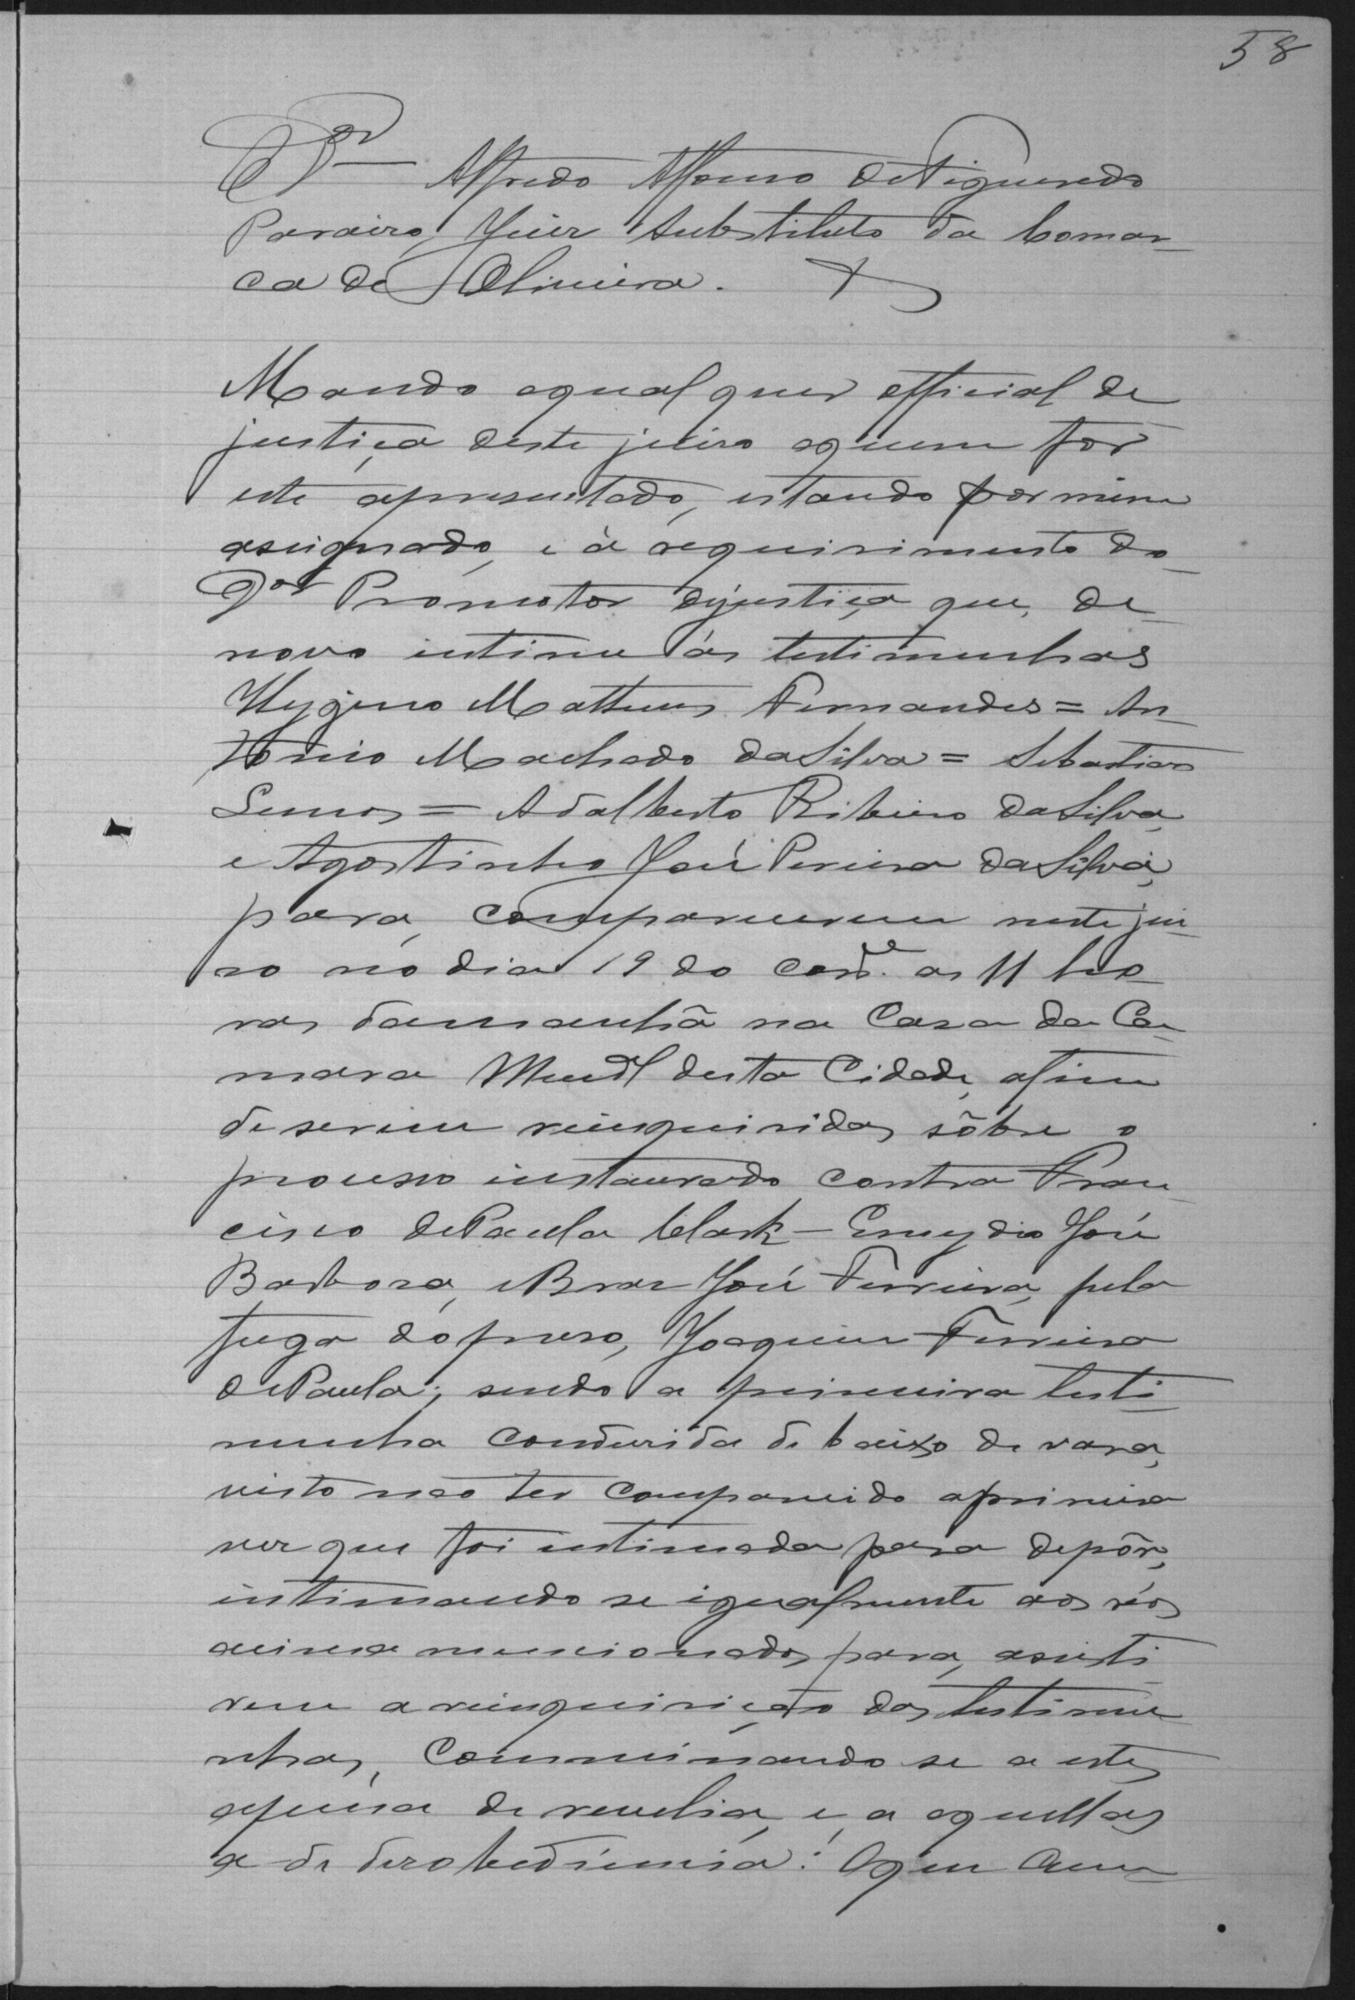 58
O Dor Alfredo Affonso de Figueredo
Paraizo, Juiz Substituto da Comar-
ca de Oliveira.
Mando aqualquer official de
justiça deste juizo aquem for
este apresentado, estando por mim
assignado, e á requirimento do
Dor Promotor dejustiça que, de
novo intime ás testimunhas
Hygino Mattheus Fernandes = An-
tonio Machado da Silva = Sebastião
Lemos = Adalberto Ribeiro da Silva,
e Agostinho José Pereira da Silva,
para, comparecerem neste jui-
zo no dia 19 do corre. as 11 ho-
ras damanhã na Casa da Ca-
mara Munal desta Cidade, afim
de serem reinquiridas sôbre o
processo instaurado contra Fran-
cisco de Paula Clark - Emydio José
Barbosa, e Braz José Ferreira, pela
fuga do preso, Joaquim Ferreira
de Paula; sendo a primeira testi-
munha condusida de baixo de vara,
visto nao ter comparecido aprimeira
vez que foi intimada para depôr,
intimando se igualmente aos réos
acima mencionados para, assisti-
rem a reinquirição das testimu-
nhas, comminando se a estes
apena de revelia, e, a aquellas
a de desobediencia: Oque cum-